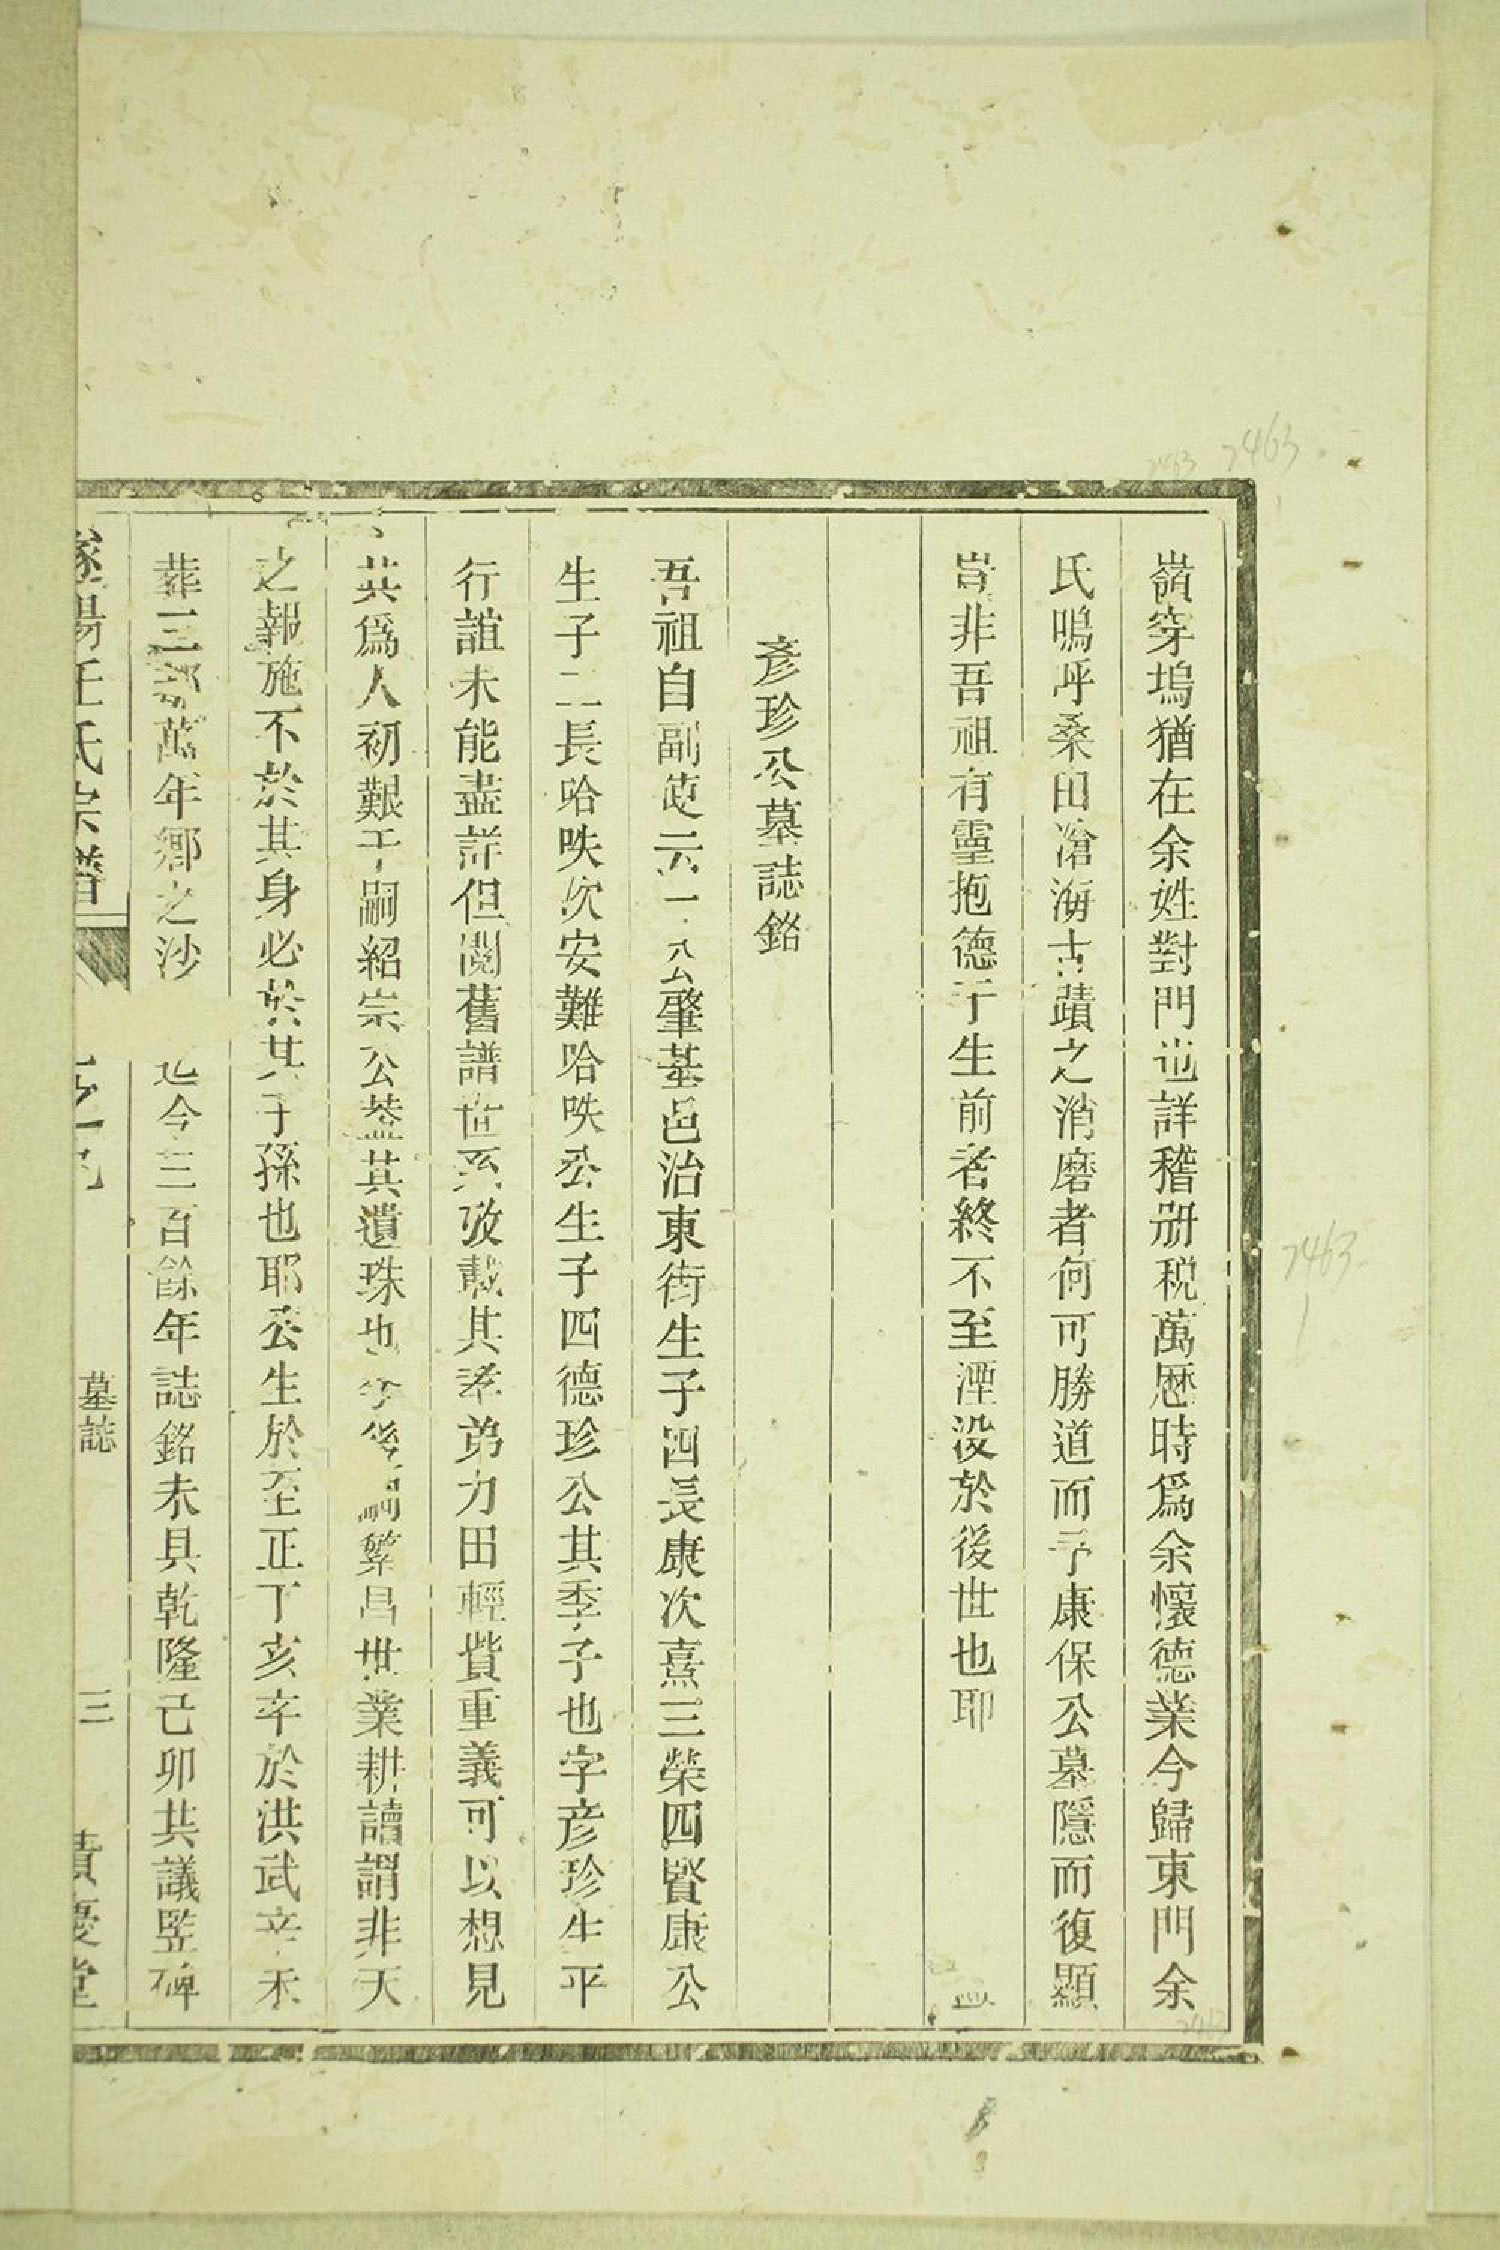 嶺穿塢猶在余姓對門也詳稽册税萬厯時爲余懷德業今歸東門余
氏嗚呼桑田滄海古蹟之消磨者何可勝道而予康保公墓隱而復顯
豈非吾祖有靈抱德于生前者終不至湮没於後世也耶
彥珍公墓誌銘
吾祖自副使六一公肇基邑治東街生子四長康次熹三榮四賢康公
生子二長哈㕸次安難哈㕸公生子四德珍公其季子也字彦珍生平
行誼未能盡詳但閲舊譜世系攷載其孝弟力田輕貲重義可以想見
其爲人初艱于嗣紹宗公葢其遺珠也今後嗣繁昌世業耕讀謂非天
之報施不於其身必於其子孫也耶公生於至正丁亥卒於洪武辛未
葬三都萬年鄉之沙 迄今三百餘年誌銘未具乾隆己卯共議竪碑
遂陽任氏宗譜 墓誌 三 積慶堂
7463
7463
7463